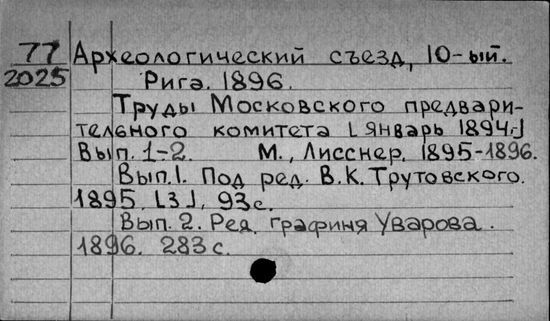 77
2025
Археологический съезд, 10-ый.
Рига. 1896.
Труды Московского предвари-
тельного комитета [январь 1894г.]
Вып. 1-2. М., Лисснер, 1895-1896.
Вып.1. Под ред. В.К.Трутовского.
1895. [3], 93с.
Вып. 2. Ред. графиня Уварова.
1896. 283 с.